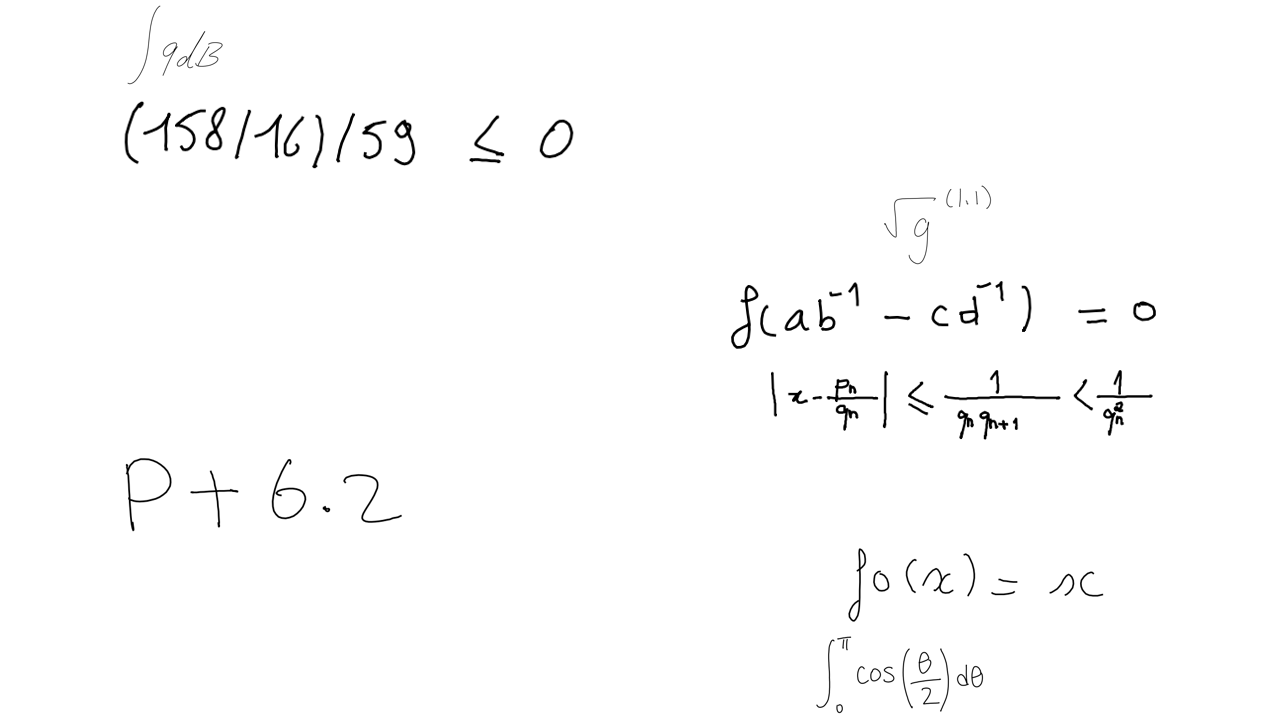 ∫qdB
(158/16)/59 ≤ 0
√g^(1,1)
f(ab^-1 - cd^-1) = 0
|x - p_n/q_n| ≤ 1/(q_n q_n+1) < 1/q_n^2
P + 6.2
f0(x) = x
∫_0^π cos(θ/2) dθ